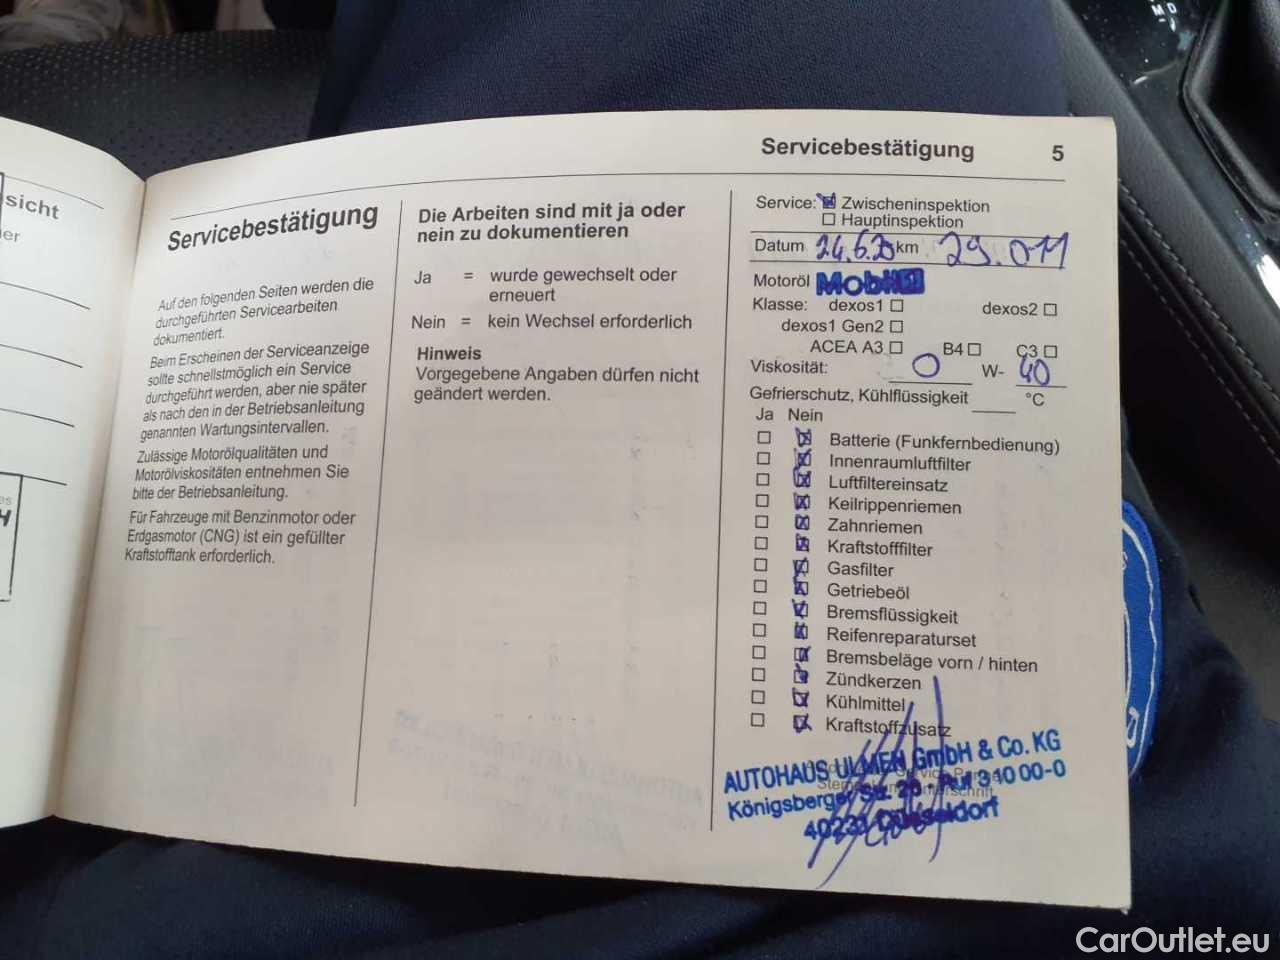 sicht
Servicebestätigung 5
Servicebestätigung
Auf den folgenden Seiten werden die
durchgeführten Servicearbeiten
dokumentiert.
Beim Erscheinen der Serviceanzeige
sollte schnellstmöglich ein Service
durchgeführt werden, aber nie später
als nach den in der Betriebsanleitung
genannten Wartungsintervallen.
Zulässige Motorölqualitäten und
Motorölviskositäten entnehmen Sie
bitte der Betriebsanleitung.
Für Fahrzeuge mit Benzinmotor oder
Erdgasmotor (CNG) ist ein gefüllter
Kraftstofftank erforderlich.
Die Arbeiten sind mit ja oder
nein zu dokumentieren
Ja = wurde gewechselt oder
erneuert
Nein = kein Wechsel erforderlich
Hinweis
Vorgegebene Angaben dürfen nicht
geändert werden.
Service: Zwischeninspektion
Hauptinspektion
Datum 24.6.20 km 29.011
Motoröl Mobil 1
Klasse: dexos1 dexos2
dexos1 Gen2
ACEA A3 B4 C3
Viskosität: 0 W- 40
Gefrierschutz, Kühlflüssigkeit °C
Ja Nein
Batterie (Funkfernbedienung)
Innenraumluftfilter
Luftfiltereinsatz
Keilrippenriemen
Zahnriemen
Kraftstofffilter
Gasfilter
Getriebeöl
Bremsflüssigkeit
Reifenreparaturset
Bremsbeläge vorn / hinten
Zündkerzen
Kühlmittel
Kraftstoffzusatz
AUTOHAUS ULMEN GmbH & Co. KG
Königsberger Str. 26 · Ruf 3 10 00-0
40231 Düsseldorf
CarOutlet.eu